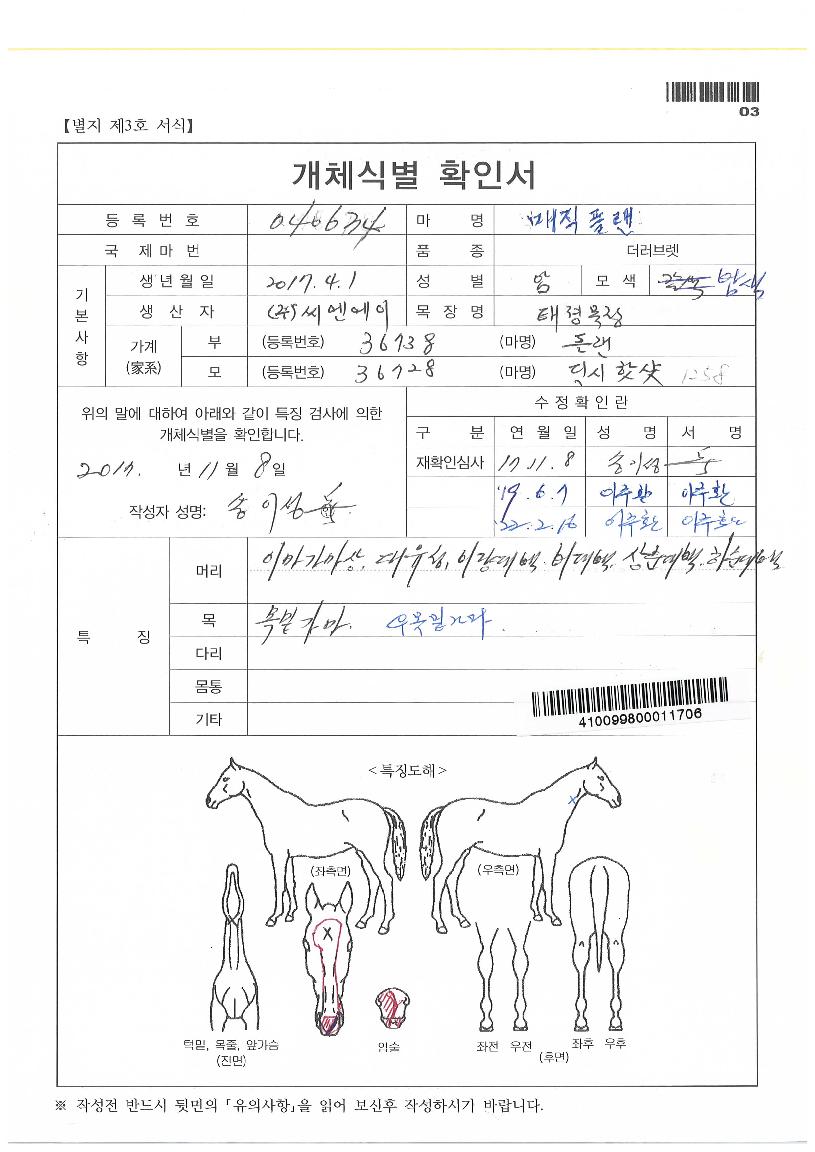 03
【별지 제3호 서식】
개체식별 확인서
등 록 번 호 046634 마 명 매직플랜
국 제 마 번 품 종 더러브렛
기본사항
생 년 월 일 2017. 4. 1 성 별 암 모 색 밤색
생 산 자 (주)씨엔에이 목 장 명 태경목장
가계 (家系) 부 (등록번호) 36738 (마명) 플랜
모 (등록번호) 36728 (마명) 덕시 핫샷 1258
위의 말에 대하여 아래와 같이 특징 검사에 의한
개체식별을 확인합니다.
2017. 년 11 월 8 일
작성자 성명: 송이성
수 정 확 인 란
구 분 연 월 일 성 명 서 명
재확인심사 17. 11. 8 송이성
'19. 6. 7 이주환 이주환
'22. 2. 16 이주환 이주환
특 징
머리 이마가마상, 대유성, 비대백, 상순대백, 하순대백
목 목밑가마. 우목밑가마.
다리
몸통
기타
410099800011706
<특징도해>
(좌측면) (우측면)
턱밑, 목줄, 앞가슴
(전면)
입술
좌전 우전
좌후 우후
(후면)
※ 작성전 반드시 뒷면의 「유의사항」을 읽어 보신후 작성하시기 바랍니다.